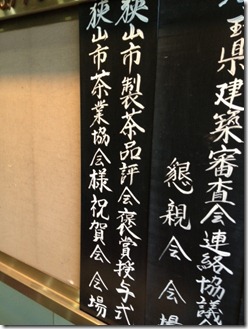 玉県建築審査会連絡協議
懇親会会場
狭山市製茶品評会褒賞授与式
狭山市茶業協会様祝賀会会場